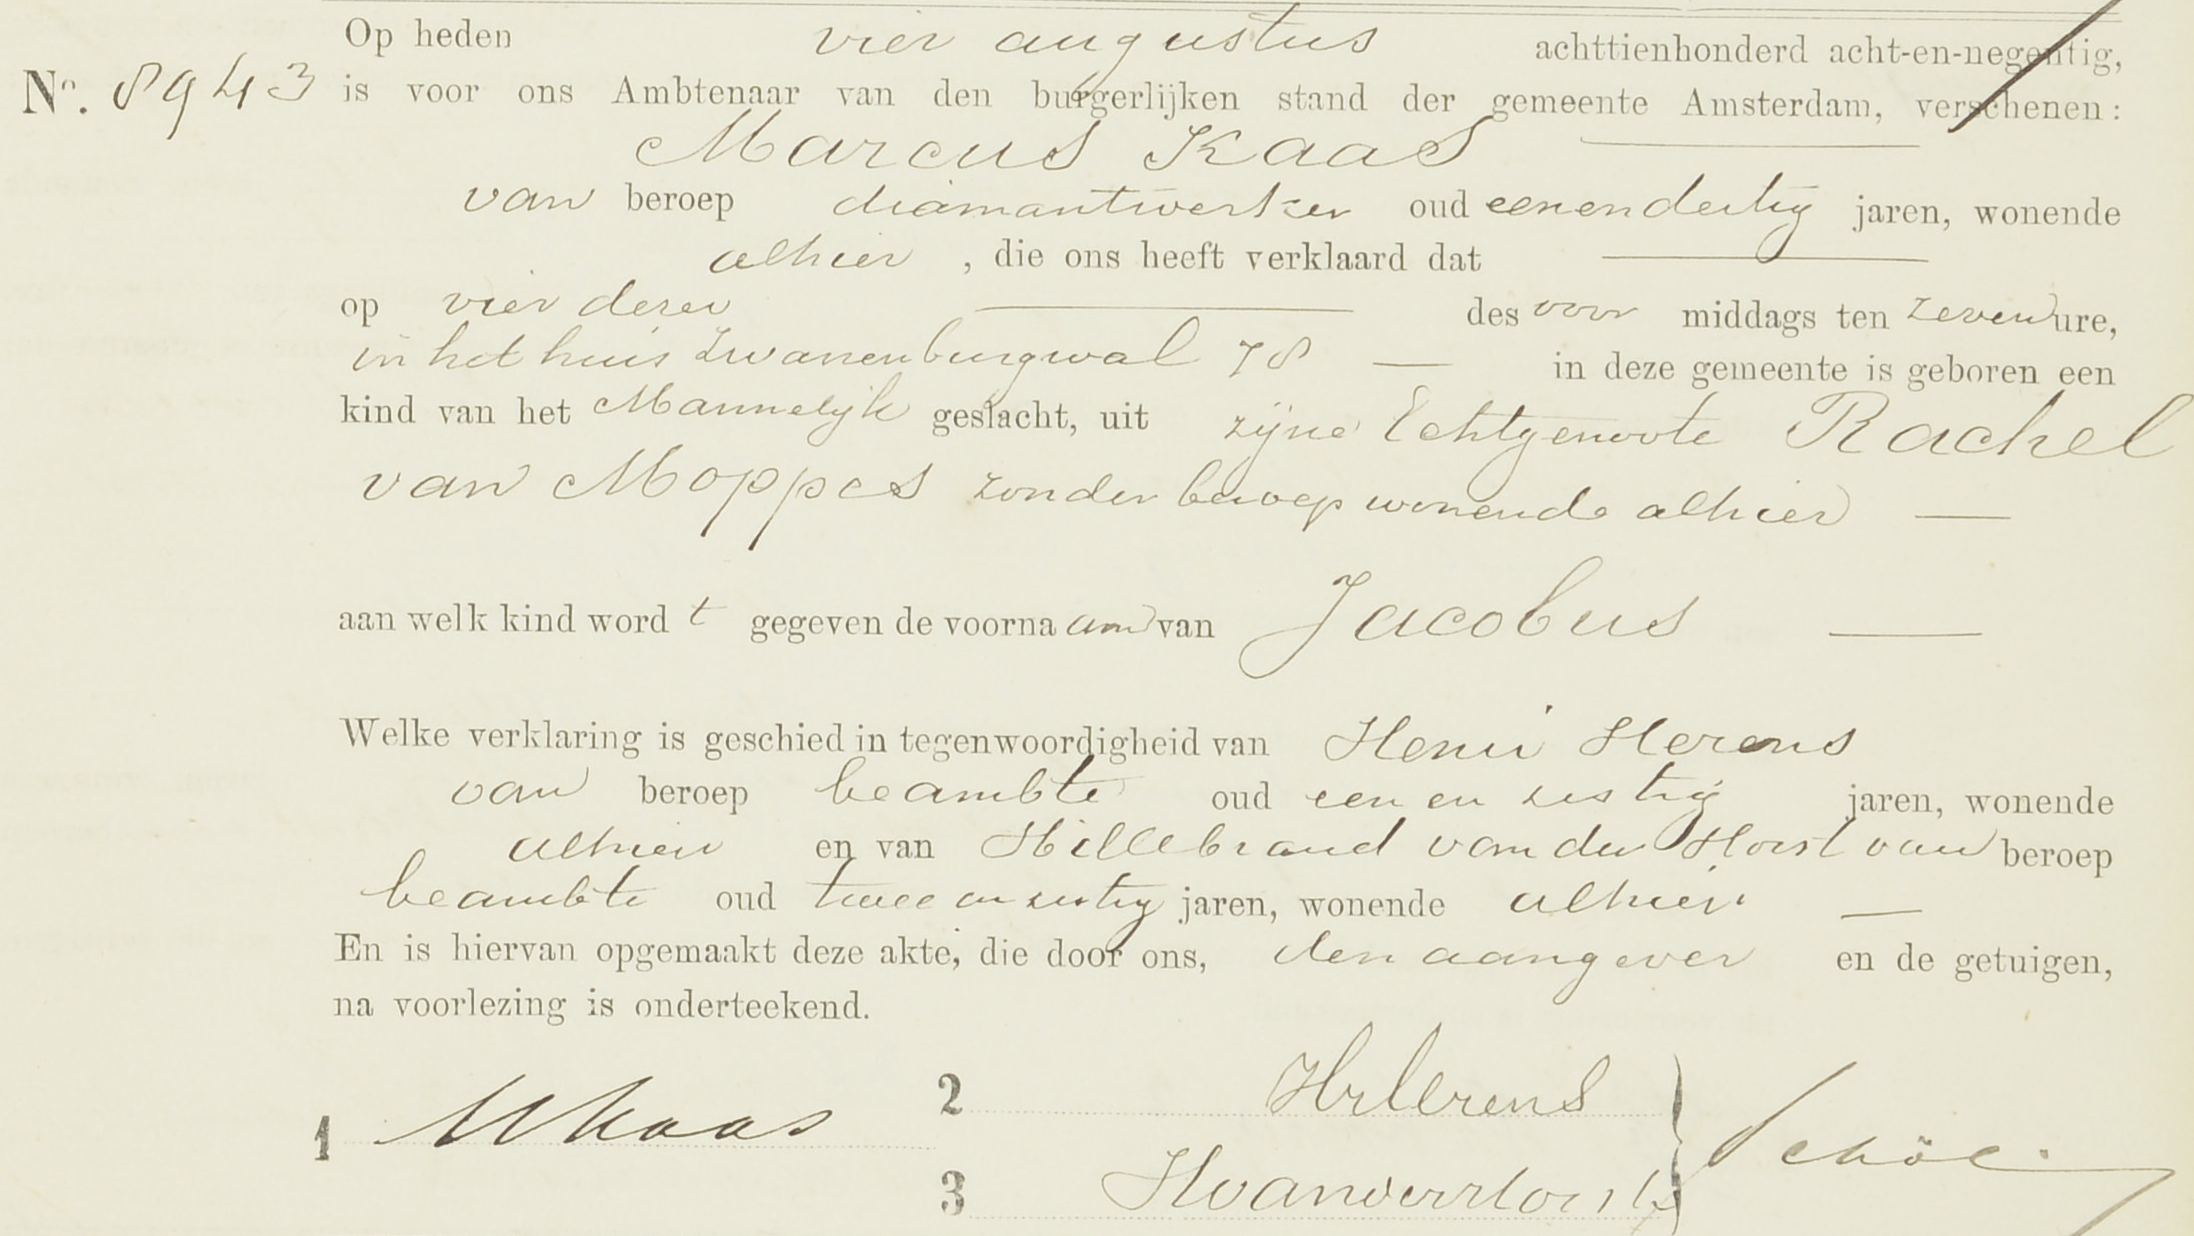 Op heden vier augustus achttienhonderd acht-en-negentig,
No. 8943 is voor ons Ambtenaar van den burgerlijken stand der gemeente Amsterdam, verschenen:
Marcus Kaas
van beroep diamantwerker oud eenendertig jaren, wonende
alhier, die ons heeft verklaard dat
op vier dezer des voor middags ten zeven ure,
in het huis Zwanenburgwal 78 in deze gemeente is geboren een
kind van het Mannelijk geslacht, uit zijne Echtgenoote Rachel
van Moppes zonder beroep wonende alhier
aan welk kind wordt gegeven de voornaam van Jacobus
Welke verklaring is geschied in tegenwoordigheid van Henri Herens
van beroep beambte oud een en zestig jaren, wonende
alhier en van Hillebrand van der Horst van beroep
beambte oud twee en zestig jaren, wonende alhier
En is hiervan opgemaakt deze akte, die door ons, den aangever en de getuigen,
na voorlezing is onderteekend.
1 MKaas
2
3 HvanderHorst